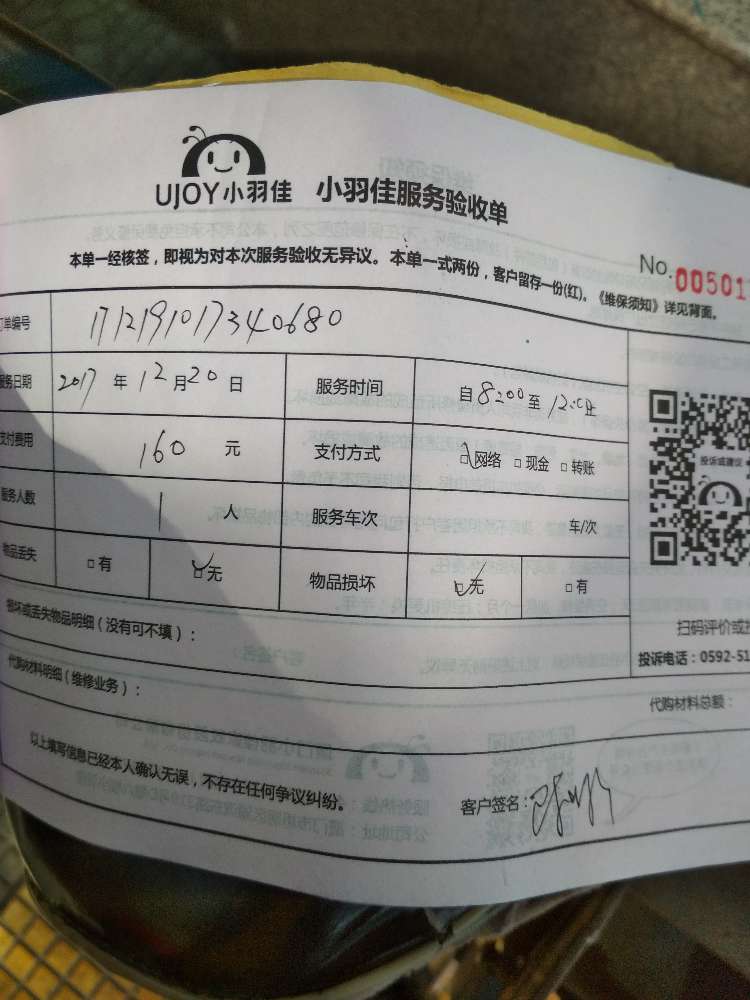 UJOY小羽佳 小羽佳服务验收单
No.005017
本单一经核签，即视为对本次服务验收无异议。本单一式两份，客户留存一份(红)。《维保须知》详见背面。
单编号 1712191017340680
服务日期 2017 年 12 月 20 日 服务时间 自 8:00 至 12:00 止
支付费用 160 元 支付方式 网络 现金 转账
服务人数 1 人 服务车次 车/次
物品丢失 有 无 物品损坏 无 有
投诉或建议
损坏或丢失物品明细（没有可不填）：
扫码评价或
投诉电话：0592-51
代购材料明细（维修业务）：
代购材料总额：
以上填写信息已经本人确认无误，不存在任何争议纠纷。
客户签名：